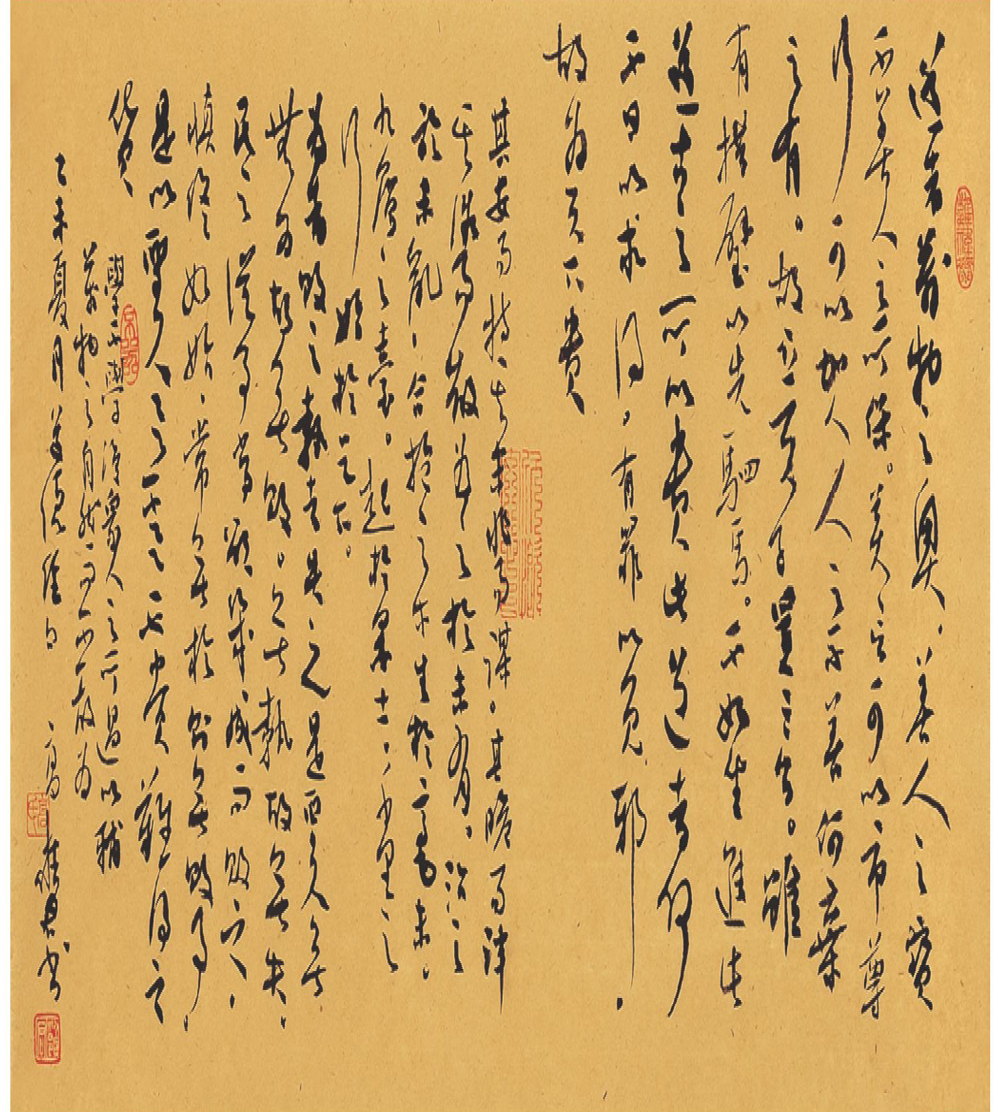 道者萬物之奧、善人之寶
不善人之所保。美言可以市尊
行可以加人人之不善何棄
之有。故立天子置三公。雖
有拱璧以先駟馬。不如坐進此
道古之所以貴此道者何
不曰以求得。有罪以免邪、
故為天下貴
其安易持其未兆易謀。其脆易泮
其微易散為之於未有。治之
於未亂、合抱之木生於毫末、
九層之臺。起於累土、千里之
行始於足下。
為者敗之執者失之是以聖人無
為故無敗。無執故無失、
民之從事常於幾成而敗之、
慎終如始、則無敗事、
是以聖人欲不欲不貴難得之
貨
學不學復眾人之所過以輔
萬物之自然而不敢為
乙未夏月道德經句 高書